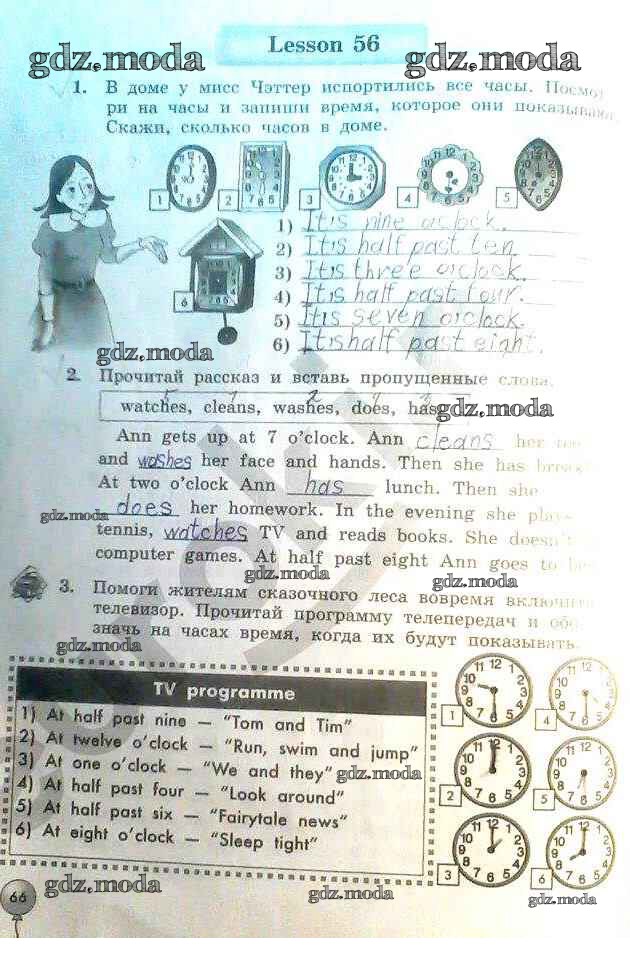 Lesson 56
gdz.moda
gdz.moda
1. В доме у мисс Чэттер испортились все часы. Посмот
ри на часы и запиши время, которое они показывают
Скажи, сколько часов в доме.
1
2
3
4
5
6
1) It is nine o'clock.
2) It is half past ten
3) It is three o'clock.
4) It is half past four.
5) It is seven o'clock.
6) It is half past eight.
gdz.moda
2. Прочитай рассказ и вставь пропущенные слова.
watches, cleans, washes, does, has
gdz.moda
Ann gets up at 7 o'clock. Ann cleans her
and washes her face and hands. Then she has break
At two o'clock Ann has lunch. Then she
does her homework. In the evening she play
gdz.moda
tennis, watches TV and reads books. She doesn't
computer games. At half past eight Ann goes to
gdz.moda
gdz.moda
3. Помоги жителям сказочного леса вовремя включить
телевизор. Прочитай программу телепередач и обо
значь на часах время, когда их будут показывать.
gdz.moda
TV programme
1) At half past nine — "Tom and Tim"
2) At twelve o'clock — "Run, swim and jump"
3) At one o'clock — "We and they"
gdz.moda
4) At half past four — "Look around"
5) At half past six — "Fairytale news"
6) At eight o'clock — "Sleep tight"
1
4
2
5
3
6
66
gdz.moda
gdz.moda
gdz.moda